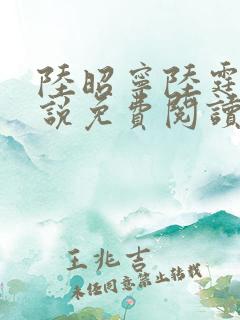 陸昭寧陸霆
説免費閱讀
王兆吉
未经同意禁止转载